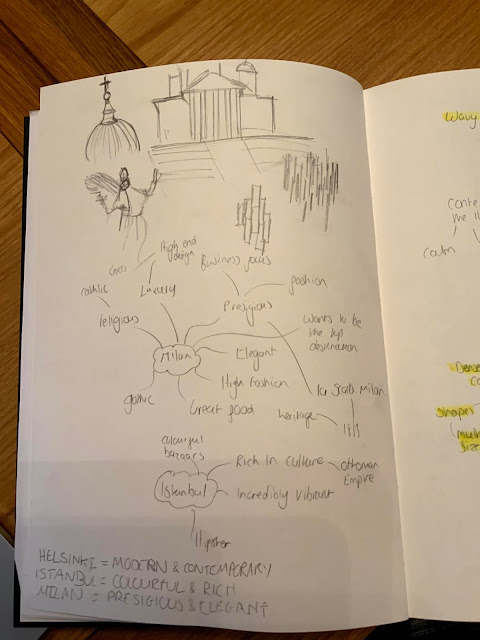 High end
design
Business focus
Gucci
fashion
catholic
Luxury
Presigious
religious
Wants to be
the top
destination
Milan
Elegant
High Fashion
gothic
Great food
la Scala Milan
heritage
colourful
bazaars
Rich In culture
ottoman
Empire
Istanbul
Incredibly vibrant
Hipster
HELSINKI = MODERN & CONTEMPORARY
ISTANBUL = COLOURFUL & RICH
MILAN = PRESIGIOUS & ELEGANT
Wavy
calm
shapes